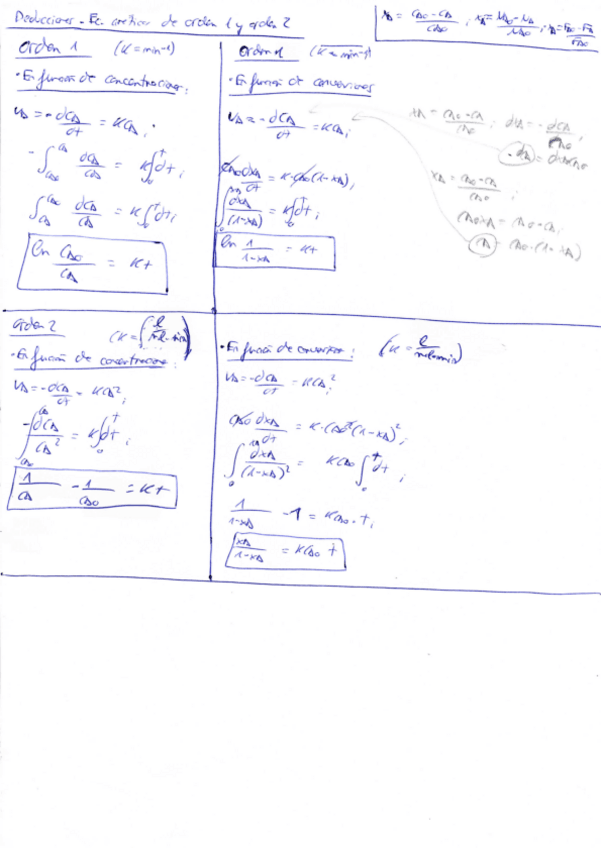 Deducciones - Ec. cinéticas de orden 1 y orden 2
xA = (CA0 - CA)/CA0 ; xA = (NA0 - NA)/NA0 ; xA = (FA0 - FA)/FA0
Orden 1 (K = min⁻¹)
· En función de concentraciones:
rA = -dCA/dt = KCA ;
-∫_CA0^CA dCA/CA = K∫_0^t dt ;
∫_CA^CA0 dCA/CA = K∫_0^t dt ;
ln CA0/CA = Kt
Orden 1 (K = min⁻¹)
· En función de conversiones
rA = -dCA/dt = KCA ;
CA0 dxA/dt = K·CA0(1-xA) ;
∫_0^xA dxA/(1-xA) = K∫_0^t dt ;
ln 1/(1-xA) = Kt
xA = (CA0 - CA)/CA0 ; dxA = -dCA/CA0 ;
-dCA = dxA CA0
xA = (CA0 - CA)/CA0 ;
CA0xA = CA0 - CA ;
CA = CA0·(1-xA)
Orden 2 (K = l/mol·min)
· En función de concentraciones:
rA = -dCA/dt = KCA² ;
-∫_CA0^CA dCA/CA² = K∫_0^t dt ;
1/CA - 1/CA0 = Kt
· En función de conversiones: (K = l/mol·min)
rA = -dCA/dt = KCA² ;
CA0 dxA/dt = K·CA0²(1-xA)² ;
∫_0^xA dxA/(1-xA)² = KCA0 ∫_0^t dt ;
1/(1-xA) - 1 = KCA0·t ;
xA/(1-xA) = KCA0 t